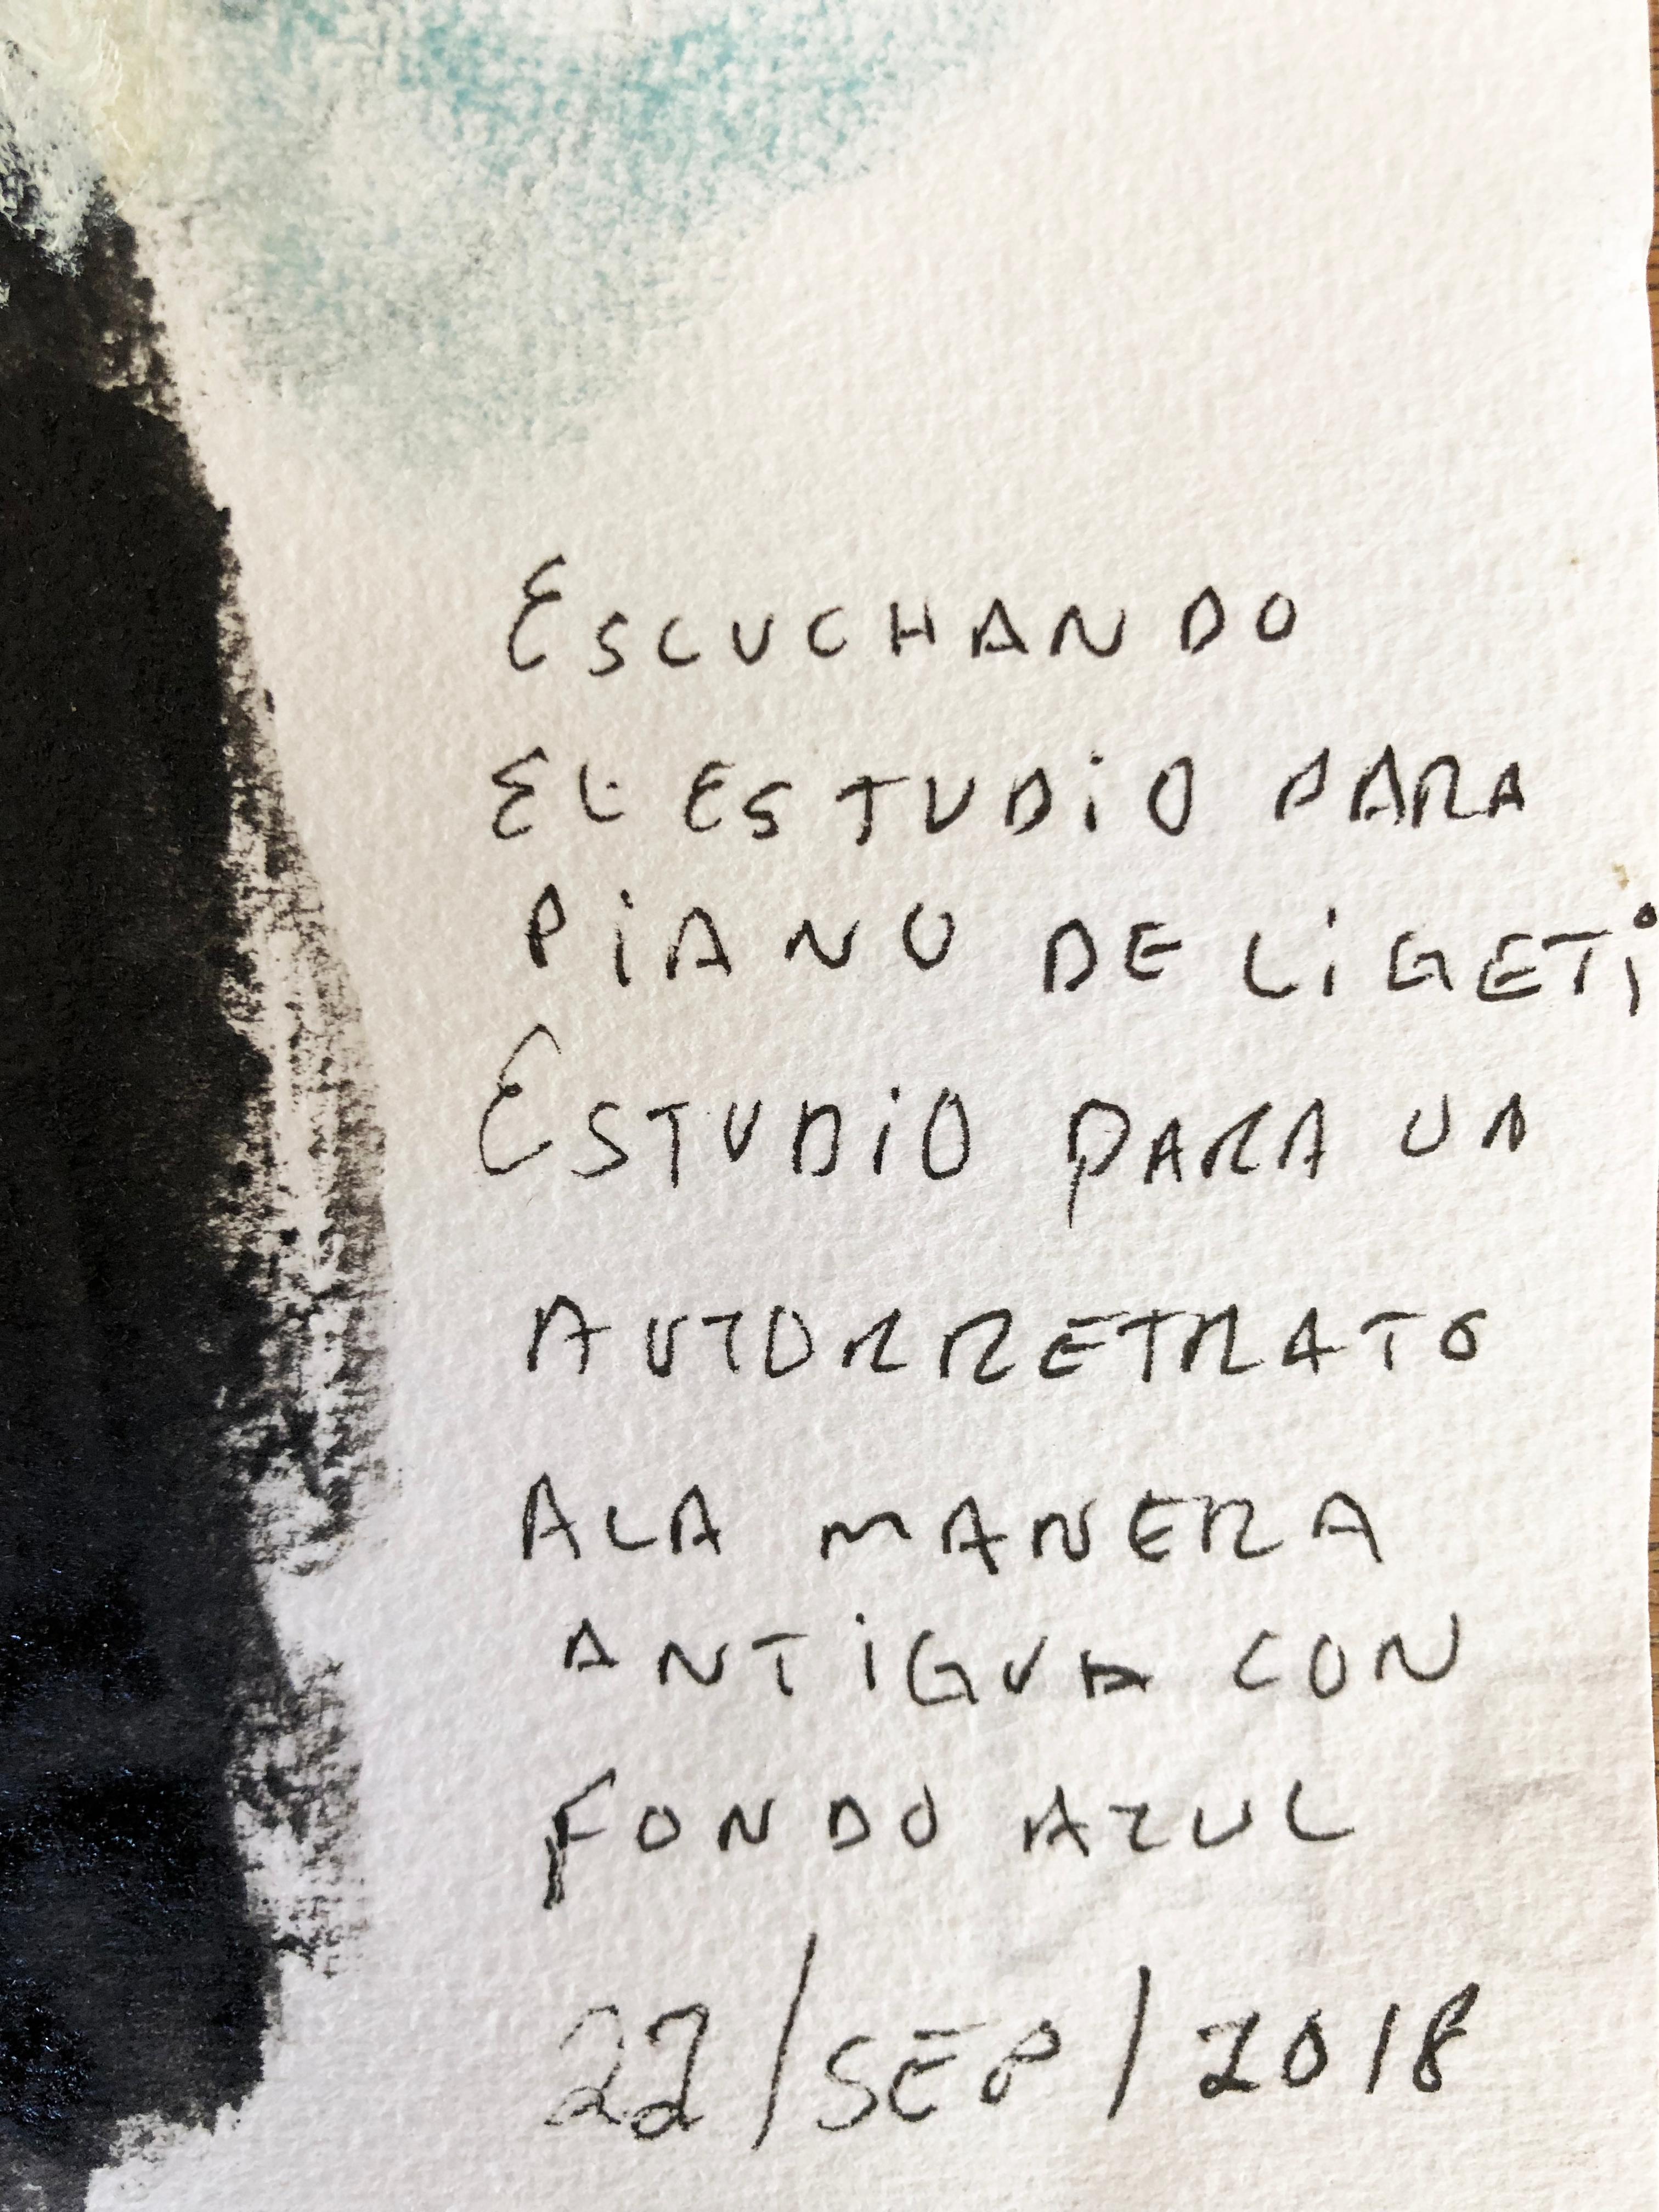 ESCUCHANDO
EL ESTUDIO PARA
PiANO DE LiGETi
ESTUDiO PARA UN
AUTORRETRATO
ALA MANERA
ANTiGUA CON
FONDO AZUL
22/SEP/2018